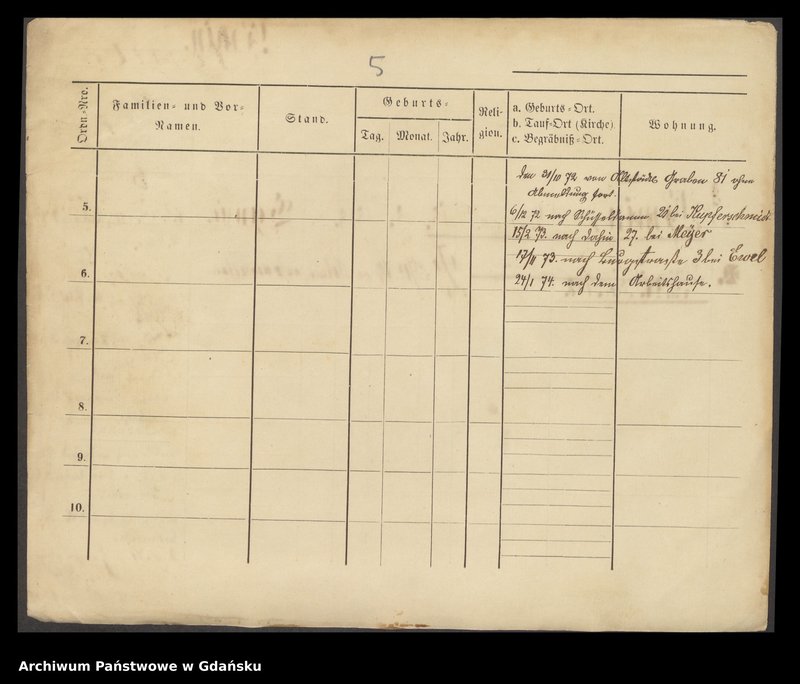 5
Ordn.-Nro.
Familien- und Vor-
Namen.
Stand.
Geburts-
Tag.
Monat.
Jahr.
Reli-
gien.
a. Geburts-Ort.
b. Tauf-Ort (Kirche)
c. Begräbniß-Ort.
Wohnung.
den 31/10 72 von Altstädt. Graben 81 ohne
Abmeldung fort.
5.
6/12 72 nach Schüsseldamm 26 bei Kupferschmidt
15/2 73. nach Dahin 27. bei Meÿer
17/11 73. nach Burgstraße 3 bei Ewel
6.
24/1 74. nach dem Arbeitshause.
7.
8.
9.
10.
Archiwum Państwowe w Gdańsku